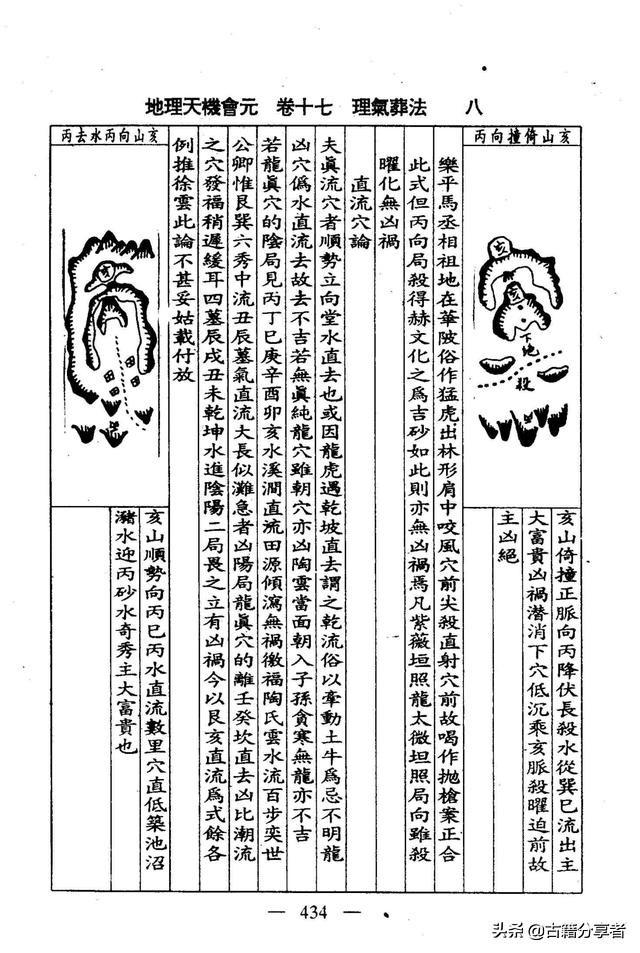 地理天機會元　卷十七　理氣葬法　八
亥山倚撞向丙
亥
亥
下地
殺
亥山倚撞正脈向丙降伏長殺水從巽巳流出主
大富貴凶禍潛消下穴低沉乘亥脈殺曜迫前故
主凶絕
樂平馬丞相祖地在華陂俗作猛虎出林形肩中咬風穴前尖殺直射穴前故喝作拋槍案正合
此式但丙向局殺得赫文化之爲吉砂如此則亦無凶禍焉凡紫薇垣照龍太微垣照局向雖殺
曜化無凶禍
直流穴論
夫眞流穴者順勢立向堂水直去也或因龍虎遇乾坡直去謂之乾流俗以牽動土牛爲忌不明龍
凶穴僞水直流去故去不吉若無眞純龍穴雖朝穴亦凶陶雲當面朝入子孫貪寒無龍亦不吉
若龍眞穴的陰局見丙丁巳庚辛酉卯亥水溪澗直流田源傾瀉無禍徵福陶氏雲水流百步奕世
公卿惟艮巽六秀中流丑辰墓氣直流大長似灘急者凶陽局龍眞穴的離壬癸坎直去凶比潮流
之穴發福稍遲緩耳四墓辰戌丑未乾坤水進陰陽二局畏之立有凶禍今以艮亥直流爲式餘各
例推徐雲此論不甚妥姑載付放
亥山向丙水去丙
亥
田
田
田
田
亥山順勢向丙巳丙水直流數里穴直低築池沼
瀦水迎丙砂水奇秀主大富貴也
— 434 —
头条 @古籍分享者